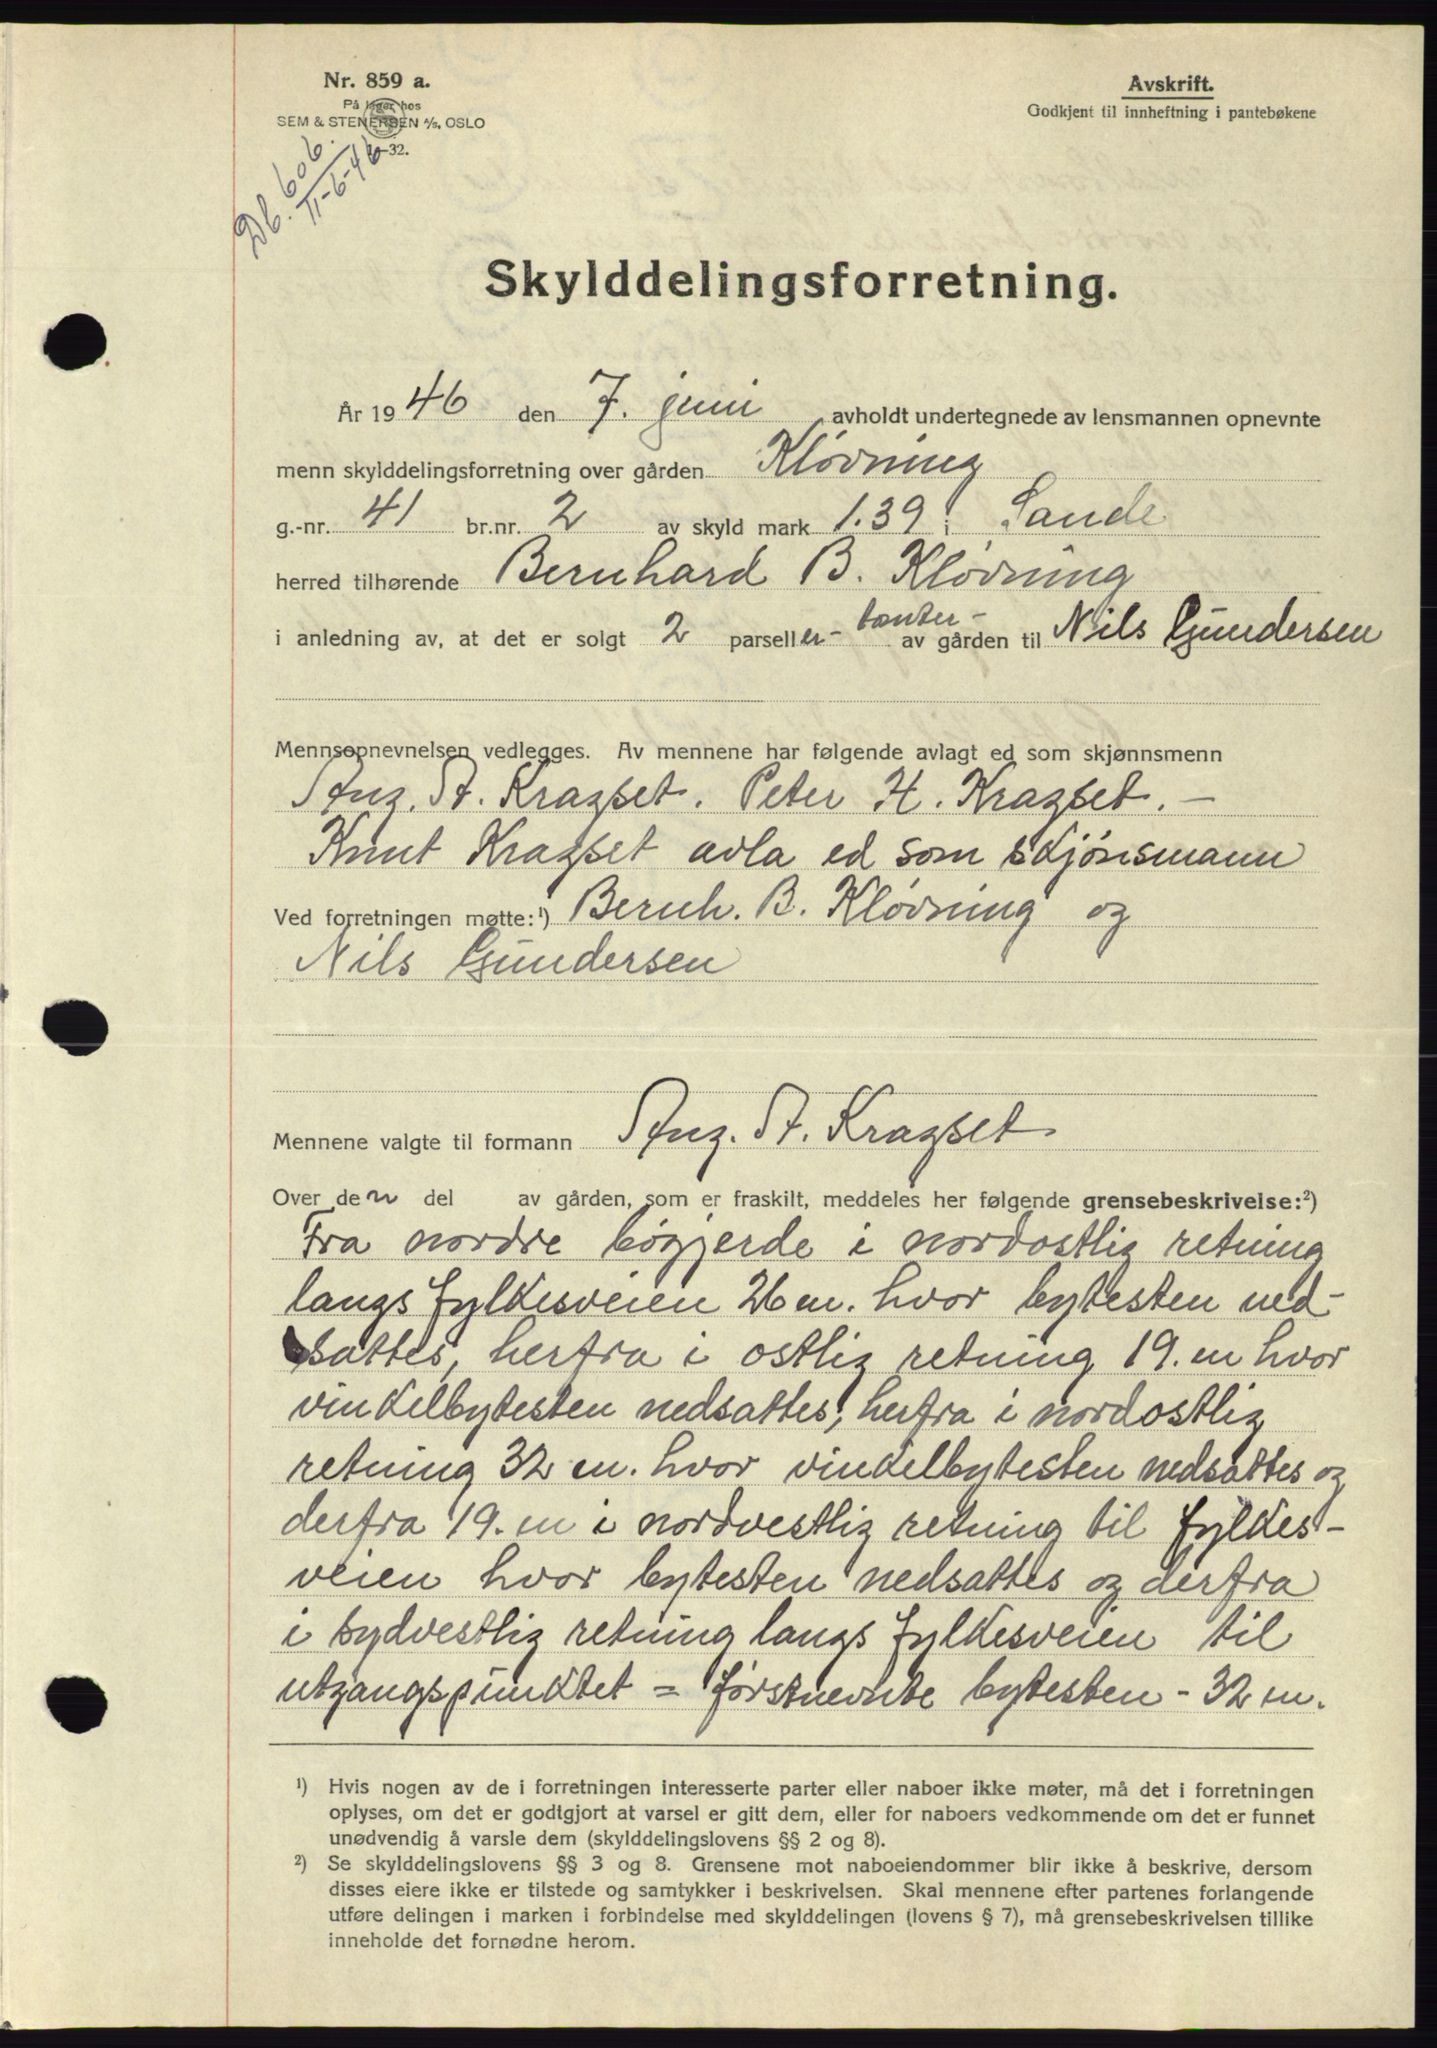 Nr. 859 a.
På lager hos
SEM & STENERSEN A/S, OSLO
-32.
Db. 606.
11-6-46
Avskrift.
Godkjent til innheftning i pantebøkene
Skylddelingsforretning.
År 1946 den 7. juni avholdt undertegnede av lensmannen opnevnte
menn skylddelingsforretning over gården Kløvning
g.-nr. 41 br.nr. 2 av skyld mark 1.39 i Sande
herred tilhørende Bernhard B. Kløvning
i anledning av, at det er solgt 2 parseller- tomter- av gården til Nils Gundersen
Mennsopnevnelsen vedlegges. Av mennene har følgende avlagt ed som skjønnsmenn
St. Kragset. Peter H. Kragset. —
Knut Kragset avla ed som skjønsmann
Ved forretningen møtte:¹) Bernh. B. Kløvning og
Nils Gundersen
Mennene valgte til formann St. Kragset
Over den del av gården, som er fraskilt, meddeles her følgende grensebeskrivelse:²)
Fra nordre bøgjerde i nordostlig retning
langs fylkesveien 26 m. hvor bytesten ned-
sattes, herfra i ostlig retning 19. m hvor
vinkelbytesten nedsattes, herfra i nordostlig
retning 32 m. hvor vinkelbytesten nedsattes og
derfra 19. m i nordvestlig retning til fylkes-
veien hvor bytesten nedsattes og derfra
i sydvestlig retning langs fylkesveien til
utgangspunktet = førstnevnte bytesten - 32 m.
¹) Hvis nogen av de i forretningen interesserte parter eller naboer ikke møter, må det i forretningen
oplyses, om det er godtgjort at varsel er gitt dem, eller for naboers vedkommende om det er funnet
unødvendig å varsle dem (skylddelingslovens §§ 2 og 8).
²) Se skylddelingslovens §§ 3 og 8. Grensene mot naboeiendommer blir ikke å beskrive, dersom
disses eiere ikke er tilstede og samtykker i beskrivelsen. Skal mennene efter partenes forlangende
utføre delingen i marken i forbindelse med skylddelingen (lovens § 7), må grensebeskrivelsen tillike
inneholde det fornødne herom.